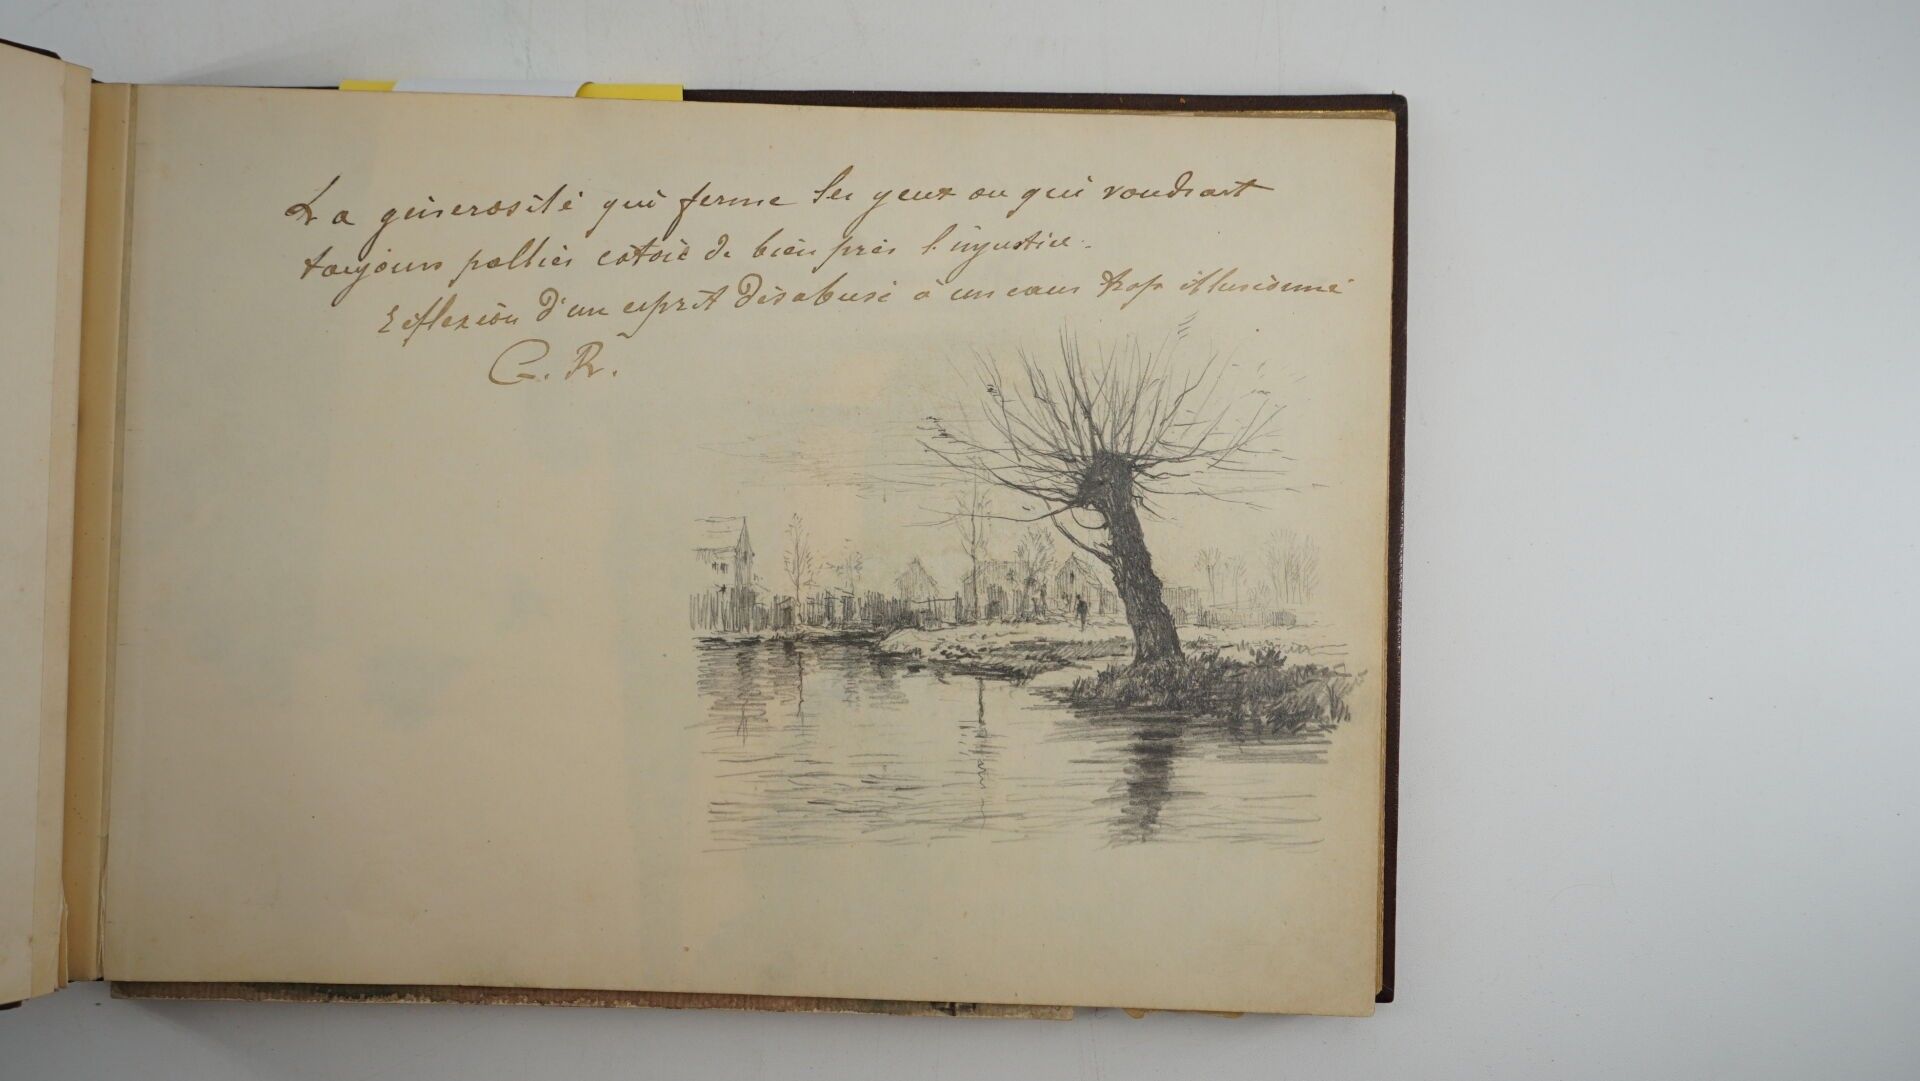 La générosité qui ferme les yeux ou qui voudrait
toujours pallier côtoie de bien près l'injustice.
Réflexion d'un esprit désabusé à un cœur trop illusionné
G. R.